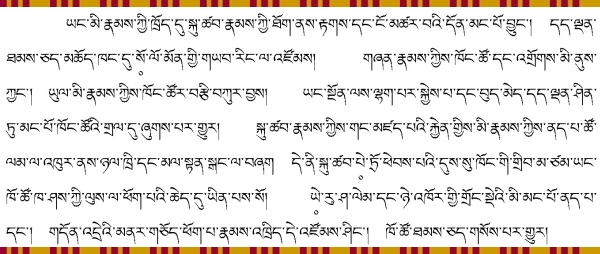 ཡང་མི་རྣམས་ཀྱི་ཁྲོད་དུ་སྐུ་ཚབ་རྣམས་ཀྱི་ཐོག་ནས་རྟགས་དང་ངོ་མཚར་བའི་དོན་མང་པོ་བྱུང་། དད་ལྡན་
ཐམས་ཅད་མཆོད་ཁང་དུ་སོ༹་ལོ་མོན་གྱི་གཡབ་རིང་ལ་འཛོམས། གཞན་རྣམས་ཀྱིས་ཁོང་ཚོ་དང་འགྲོགས་མི་ནུས་
ཀྱང་། ཡུལ་མི་རྣམས་ཀྱིས་ཁོང་ཚོར་བརྩི་བཀུར་བྱས། ཡང་སྔོན་ལས་ལྷག་པར་སྐྱེས་པ་དང་བུད་མེད་དད་ལྡན་ཤིན་
ཏུ་མང་པོ་ཁོང་ཚོའི་གྲལ་དུ་ཞུགས་པར་གྱུར། སྐུ་ཚབ་རྣམས་ཀྱིས་གང་མཛད་པའི་རྐྱེན་གྱིས་མི་རྣམས་ཀྱིས་ནད་པ་ཚོ་
ལམ་ལ་འཁུར་ནས་ཉལ་ཁྲི་དང་མལ་སྟན་སྒང་ལ་བཞག དེ་ནི་སྐུ་ཚབ་པེ་ཏྲོ་ཕེབས་པའི་དུས་སུ་ཁོང་གི་གྲིབ་མ་ཙམ་ཡང་
ཁོ་ཚོ་ཁ་ཤས་ཀྱི་ལུས་ལ་ཕོག་པའི་ཆེད་དུ་ཡིན་པས་སོ། ཡེ་རུ་ཤ་ལེམ་དང་ཉེ་འཁོར་གྱི་གྲོང་སྡེའི་མི་མང་པོ་ནད་པ་
དང་། གདོན་འདྲེའི་མནར་གཅོད་ཕོག་པ་རྣམས་འཁྲིད་དེ་འཛོམས་ཤིང་། ཁོ་ཚོ་ཐམས་ཅད་གསོས་པར་གྱུར།